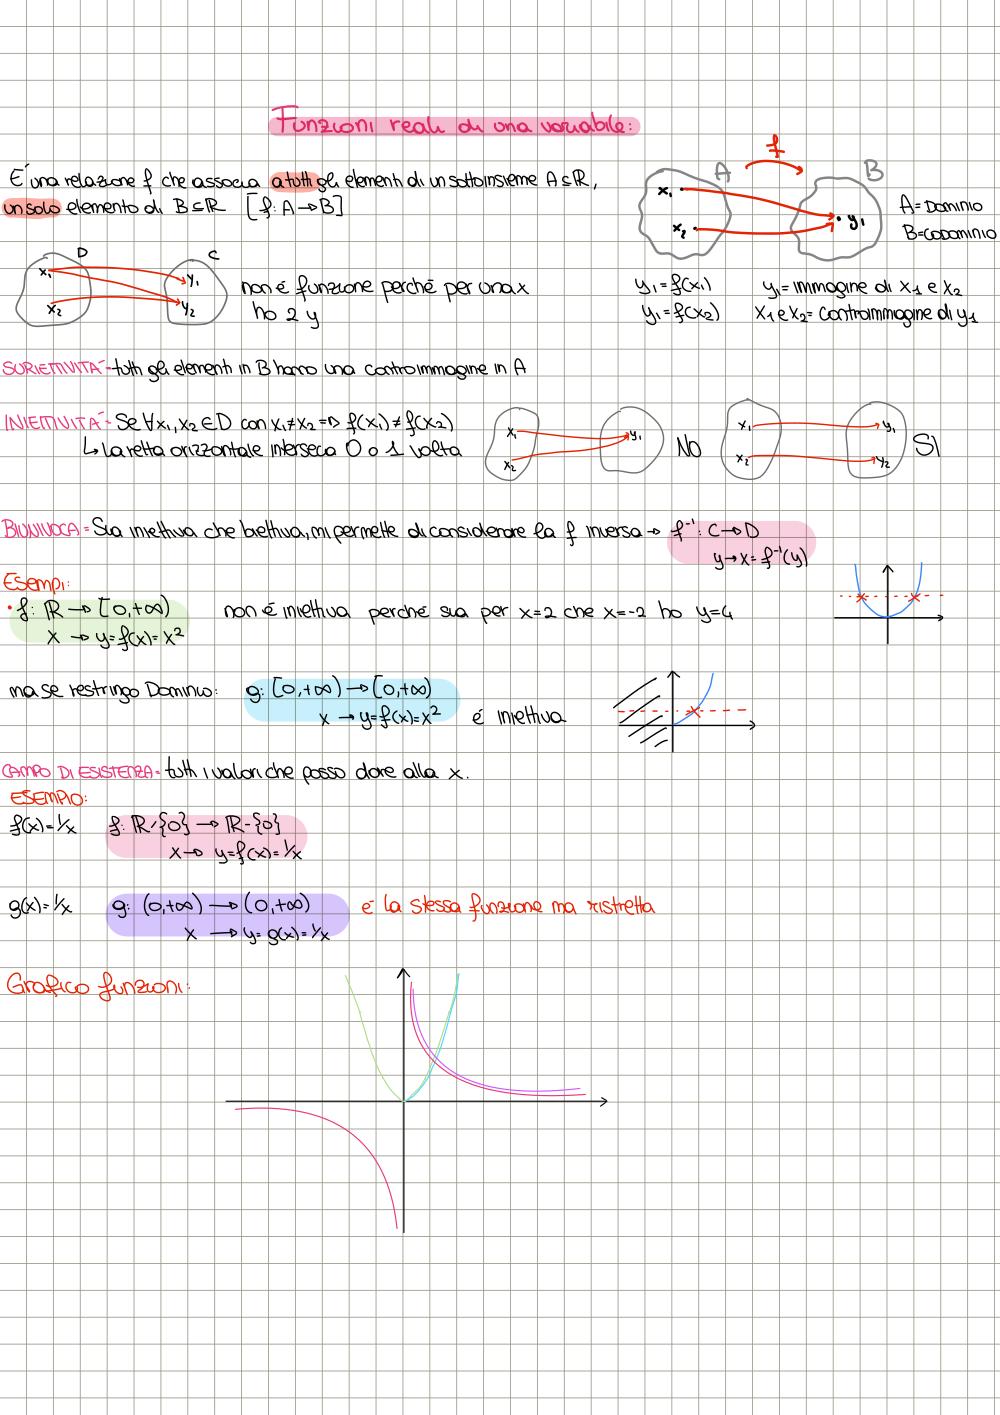 Funzioni reali di una variabile:
E' una relazione f che associa a tutti gli elementi di un sottoinsieme A⊆R,
un solo elemento di B⊆R [f: A→B]
A f B
x₁
x₂
y₁
A= DOMINIO
B=CODOMINIO
D C
x₁
x₂
y₁
y₂
non é funzione perché per una x
ho 2 y
y₁=f(x₁)
y₁=f(x₂)
y₁= immagine di x1 e x2
x1 e x2= controimmagine di y1
SURIETTIVITA'- tutti gli elementi in B hanno una controimmagine in A
INIETTIVITA'- Se ∀x₁,x₂∈D con x₁≠x₂ => f(x₁)≠f(x₂)
↳ La retta orizzontale interseca 0 o 1 volta
x₁
x₂
y₁
NO
x₁
x₂
y₁
y₂
SI
BIUNIVOCA= Sia iniettiva che biettiva, mi permette di considerare la f inversa → f⁻¹: C→D
y→x=f⁻¹(y)
Esempi:
• f: R → [0,+∞) non é iniettiva perché sia per x=2 che x=-2 ho y=4
x → y=f(x)=x²
ma se restringo Dominio: g: [0,+∞)→[0,+∞)
x → y=f(x)=x² é iniettiva
CAMPO DI ESISTENZA- tutti i valori che posso dare alla x.
ESEMPIO:
f(x)=1/x f: R-{0} → R-{0}
x→ y=f(x)=1/x
g(x)=1/x g: (0,+∞) → (0,+∞) é la stessa funzione ma ristretta
x → y=g(x)=1/x
Grafico funzioni: